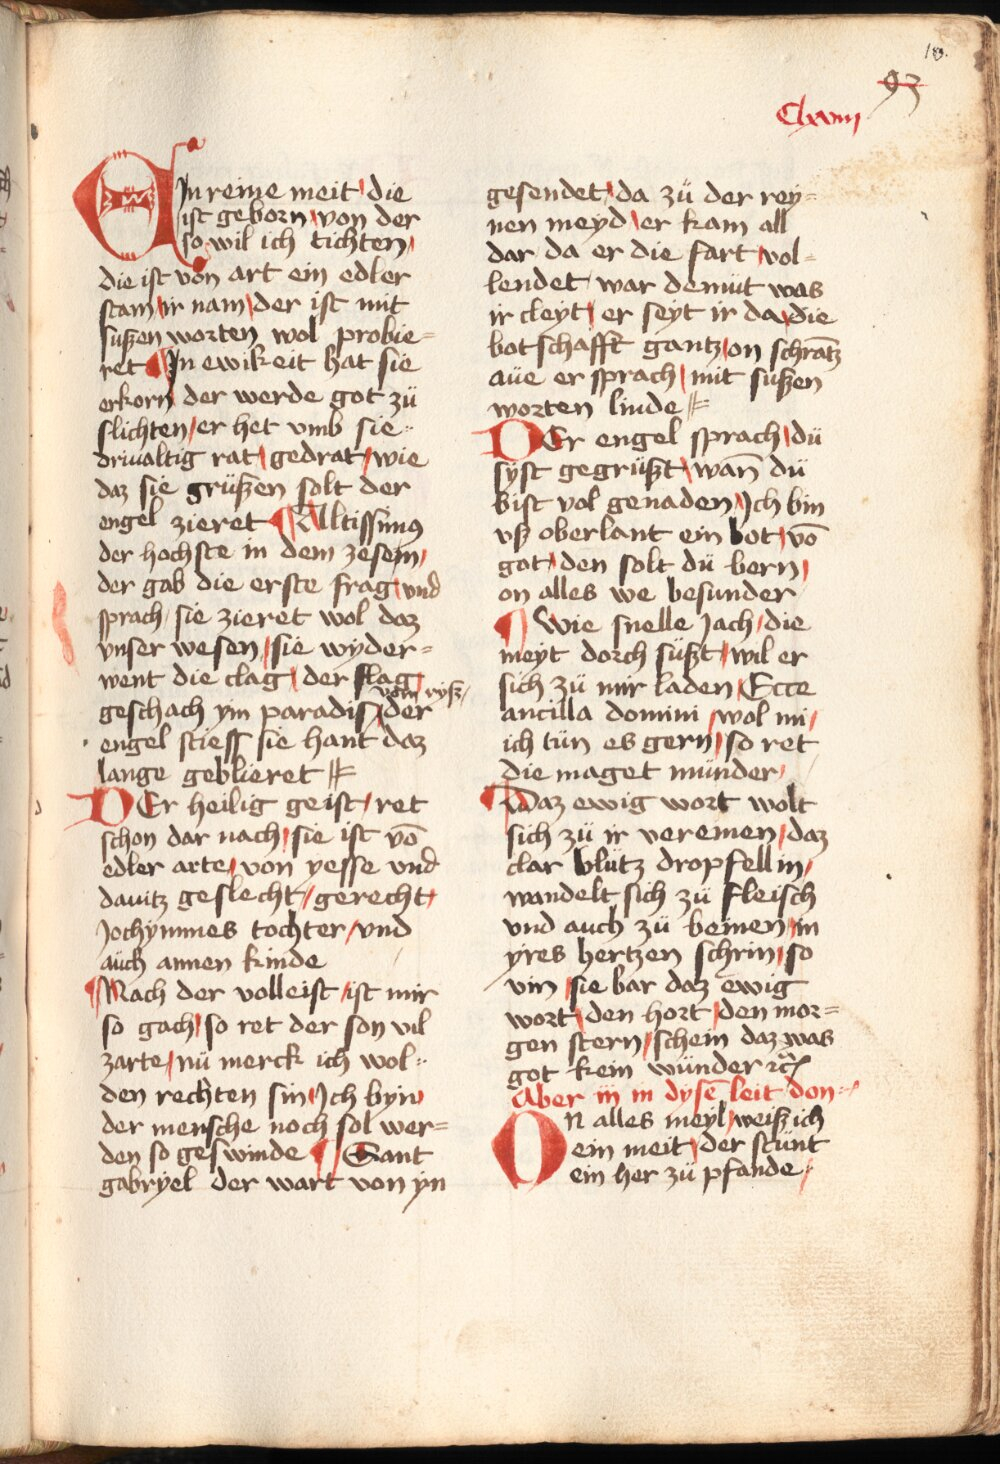 18.
93
Clxviiij
EIn reine meit / die
ist geborn / von der
so wil ich tichten /
die ist von art ein edler
stam / ir nam / der ist mit
sußen worten wol probie=
ret ¶ In ewikeit hat sie
erkorn der werde got zü
flichten / er het vmb sie
drivaltig rat / gedrat / wie
daz sie grüßen solt der
engel zieret ¶ Altissimus
der hochste in dem zesem /
der gab die erste frag / vnd
sprach / sie zieret wol daz
vnser wesen / sie wyder=
went die clag / der slag /
vom ryß /
geschach ym paradis / der
engel stiess sie hant daz
lange geblieret
DEr heilig geist / ret
schon dar nach / sie ist vō
edler arte / von yesse vnd
dauitz geslecht / gerecht /
Jochymmes tochter / vnd
aüch annen kinde
¶ Nach der volleist / ist mir
so gach / so ret der son vil
zarte / nü merck ich wol
den rechten sin / Ich byn
der mensche noch sol wer=
den so geswinde ¶ Sant
gabryel der wart von yn
gesendet / da zü der rey=
nen meyd / er kam all
dar da er die fart / vol=
lendet war demüt was
ir cleyt / er seyt ir da / die
botschafft gantz / on schrātz
aüe er sprach / mit sußen
worten linde
DEr engel sprach / dü
syst gegrüßt / wan̄ dü
bist vol genaden / Ich bin
vß oberlant ein bot / vō
got / den solt dü bern /
on alles we besunder
¶ Wie snelle Jach / die
meyt dorch süßt / wil er
sich zü mir laden / Ecce
ancilla domini / wol mi /
ich tün es gern / so ret
die maget münder /
¶ Daz ewig wort wolt
sich zü ir vereinen / daz
clar blütz dropfellin /
wandelt sich zü fleisch
vnd auch zü beinen / in
yres hertzen schrin / so
vin / sie bar daz ewig
wort / den hort / den mor=
gen stern / schein daz was
got kein wünder ꝛc̄
Aber iij in dysē leit don
ON alles meyl / weiß ich
ein meit / der stünt
ein her zü pfande /